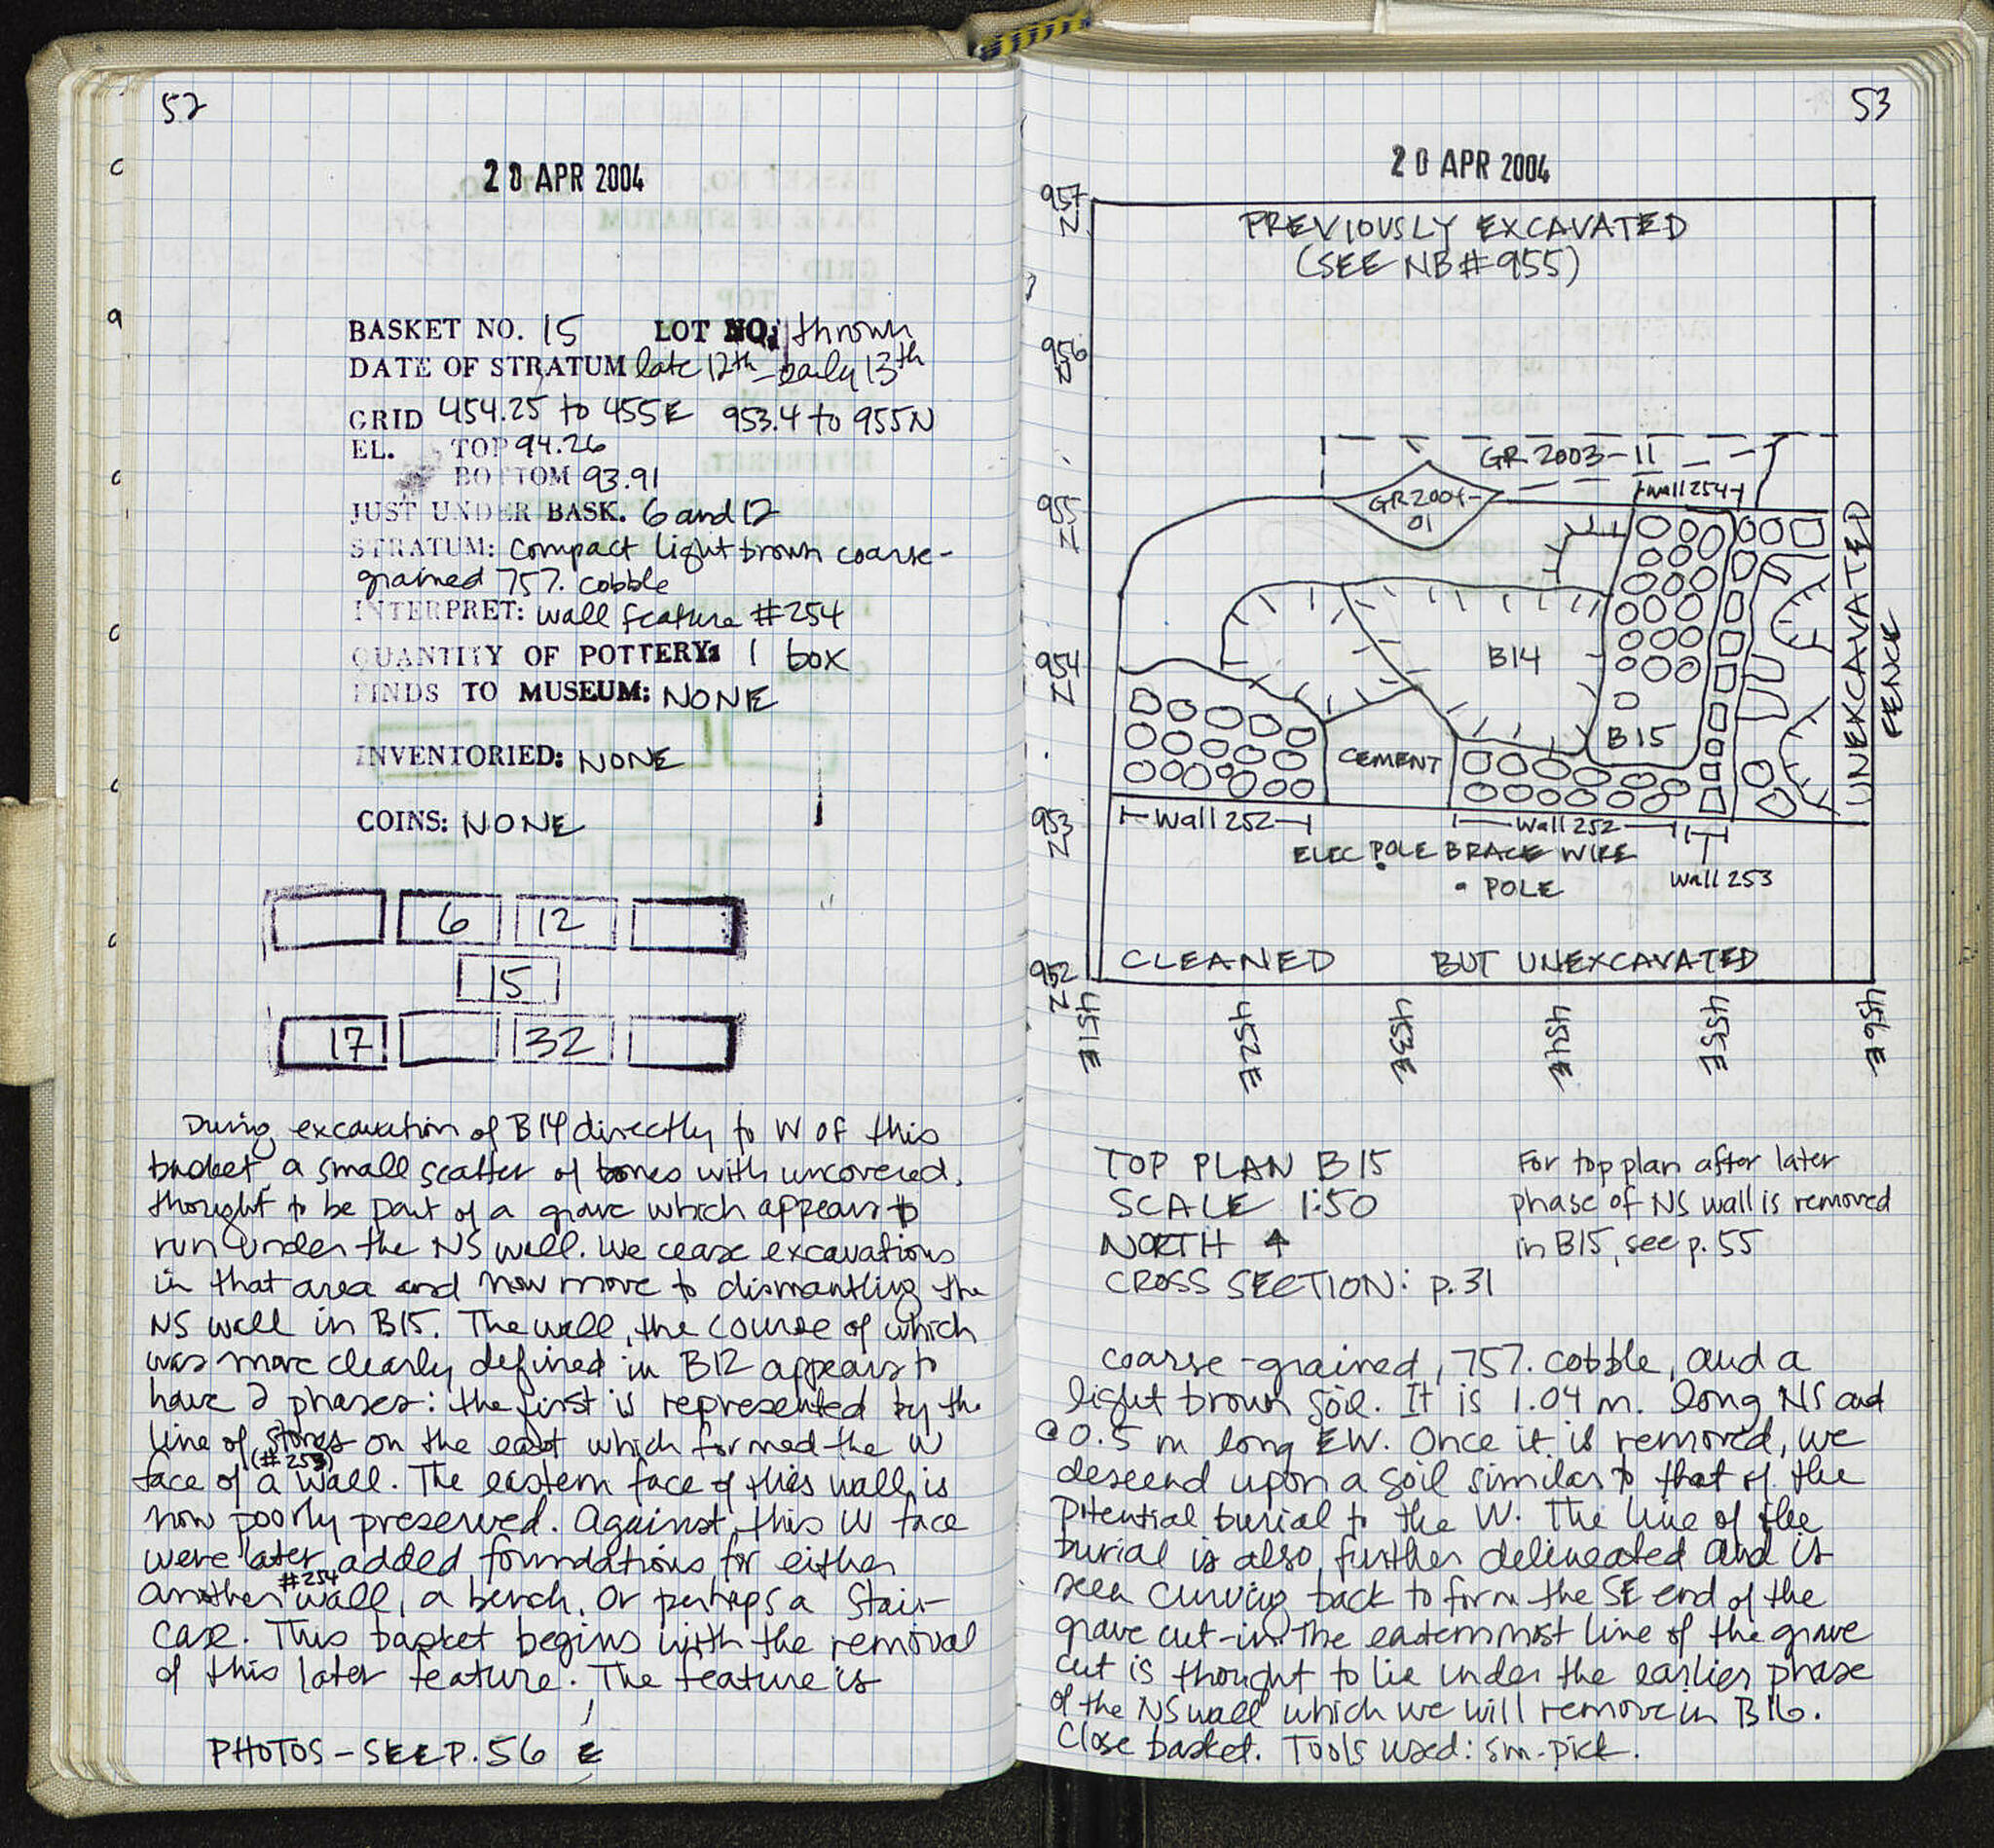 52
20 APR 2004
BASKET NO. 15 LOT NO: thrown
DATE OF STRATUM late 12th - early 13th
GRID 454.25 to 455E 953.4 to 955N
EL. TOP 94.26
BOTTOM 93.91
JUST UNDER BASK. 6 and 12
STRATUM: compact light brown coarse-
grained 75% cobble
INTERPRET: wall feature #254
QUANTITY OF POTTERY: 1 box
FINDS TO MUSEUM: NONE
INVENTORIED: NONE
COINS: NONE
6 12
15
17 32
During excavation of B14 directly to W of this
basket a small scatter of bones with uncovered,
thought to be part of a grave which appears to
run under the NS wall. We cease excavations
in that area and now move to dismantling the
NS wall in B15. The wall, the course of which
was more clearly defined in B12 appears to
have 2 phases: the first is represented by the
line of stones on the east which formed the W
(#253)
face of a wall. The eastern face of this wall is
now poorly preserved. Against this W face
were later added foundations for either
#254
another wall, a bench, or perhaps a stair-
case. This basket begins with the removal
of this later feature. The feature is
PHOTOS - SEE P. 56
53
20 APR 2004
957 N
PREVIOUSLY EXCAVATED
(SEE NB #955)
956 N
GR 2003-11
wall 254
955 N
GR 2004-
01
UNEXCAVATED
FENCE
954 N
B14
B15
CEMENT
953 N
Wall 252
Wall 252
ELEC POLE BRACE WIRE
Wall 253
POLE
952 N
CLEANED BUT UNEXCAVATED
451E 452E 453E 454E 455E 456E
TOP PLAN B15
SCALE 1:50
NORTH ↑
CROSS SECTION: p.31
For top plan after later
phase of NS wall is removed
in B15, see p. 55
coarse-grained, 75% cobble, and a
light brown soil. It is 1.04 m. long NS and
@ 0.5 m long EW. Once it is removed, we
descend upon a soil similar to that of the
potential burial to the W. The line of the
burial is also further delineated and is
seen curving back to form the SE end of the
grave cut-in. The easternmost line of the grave
cut is thought to lie under the earlier phase
of the NS wall which we will remove in B16.
Close basket. Tools used: sm. pick.